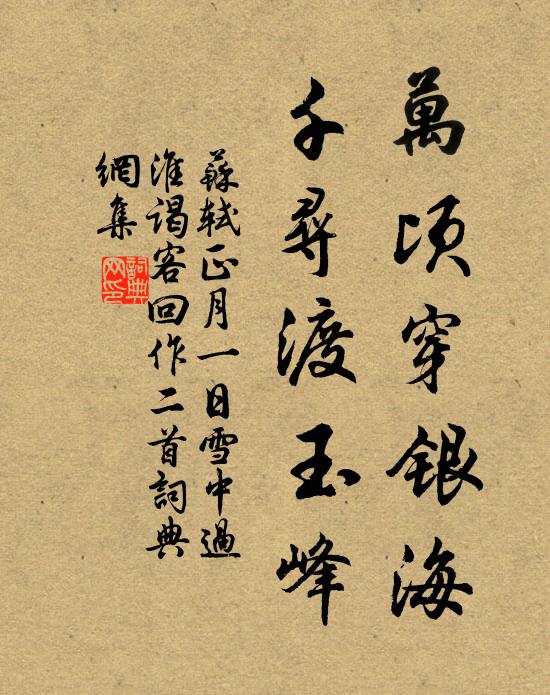 萬頃穿銀海
千尋渡玉峰
蘇軾正月一日雪中過
淮謁客回作二首詞典
網集
詞典網印